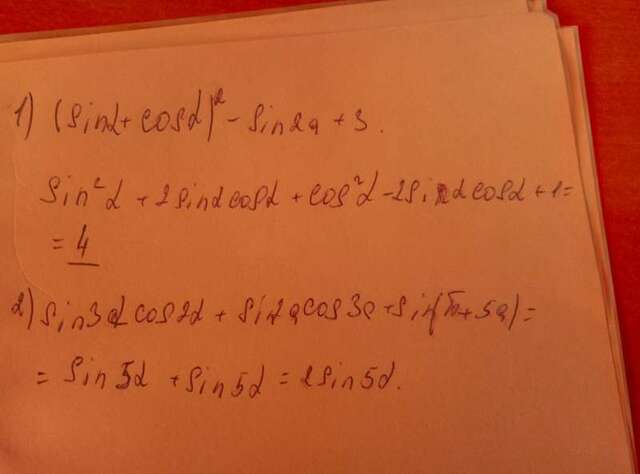 1) (sinα + cosα)² - sin2α + 3.
sin²α + 2sinαcosα + cos²α - 2sinαcosα + 1 =
= 4
2) sin3α cos2α + sin2α cos3α + sin(π + 5α) =
= sin5α + sin5α = 2sin5α.